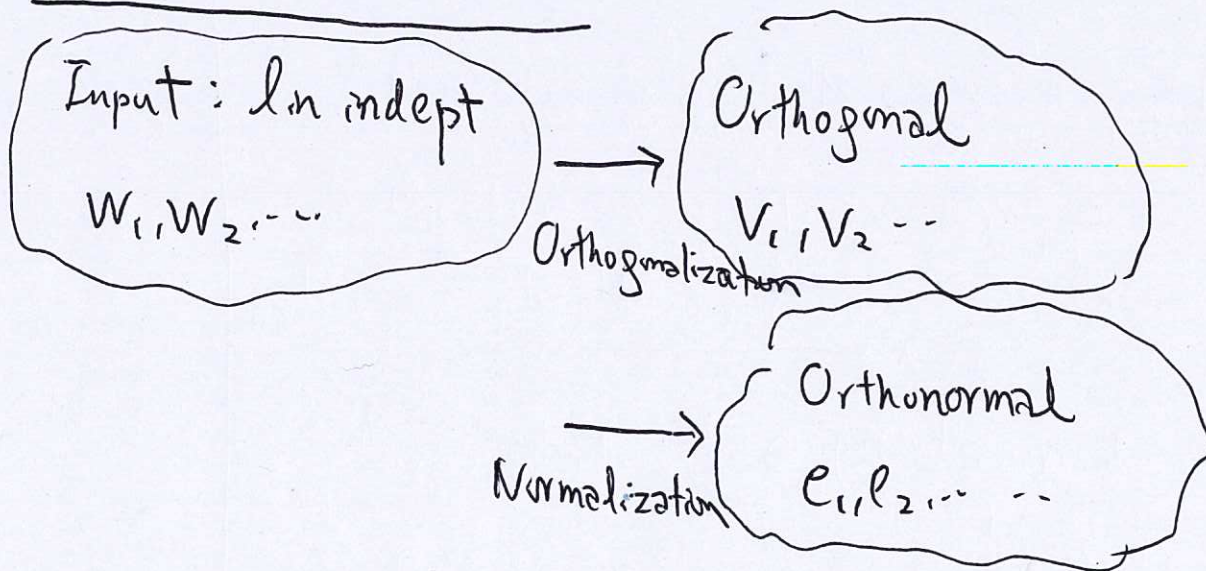 Input: lin indept
W₁, W₂, ...
Orthogonalization
Orthogonal
V₁, V₂ ...
Normalization
Orthonormal
e₁, e₂, ... ...